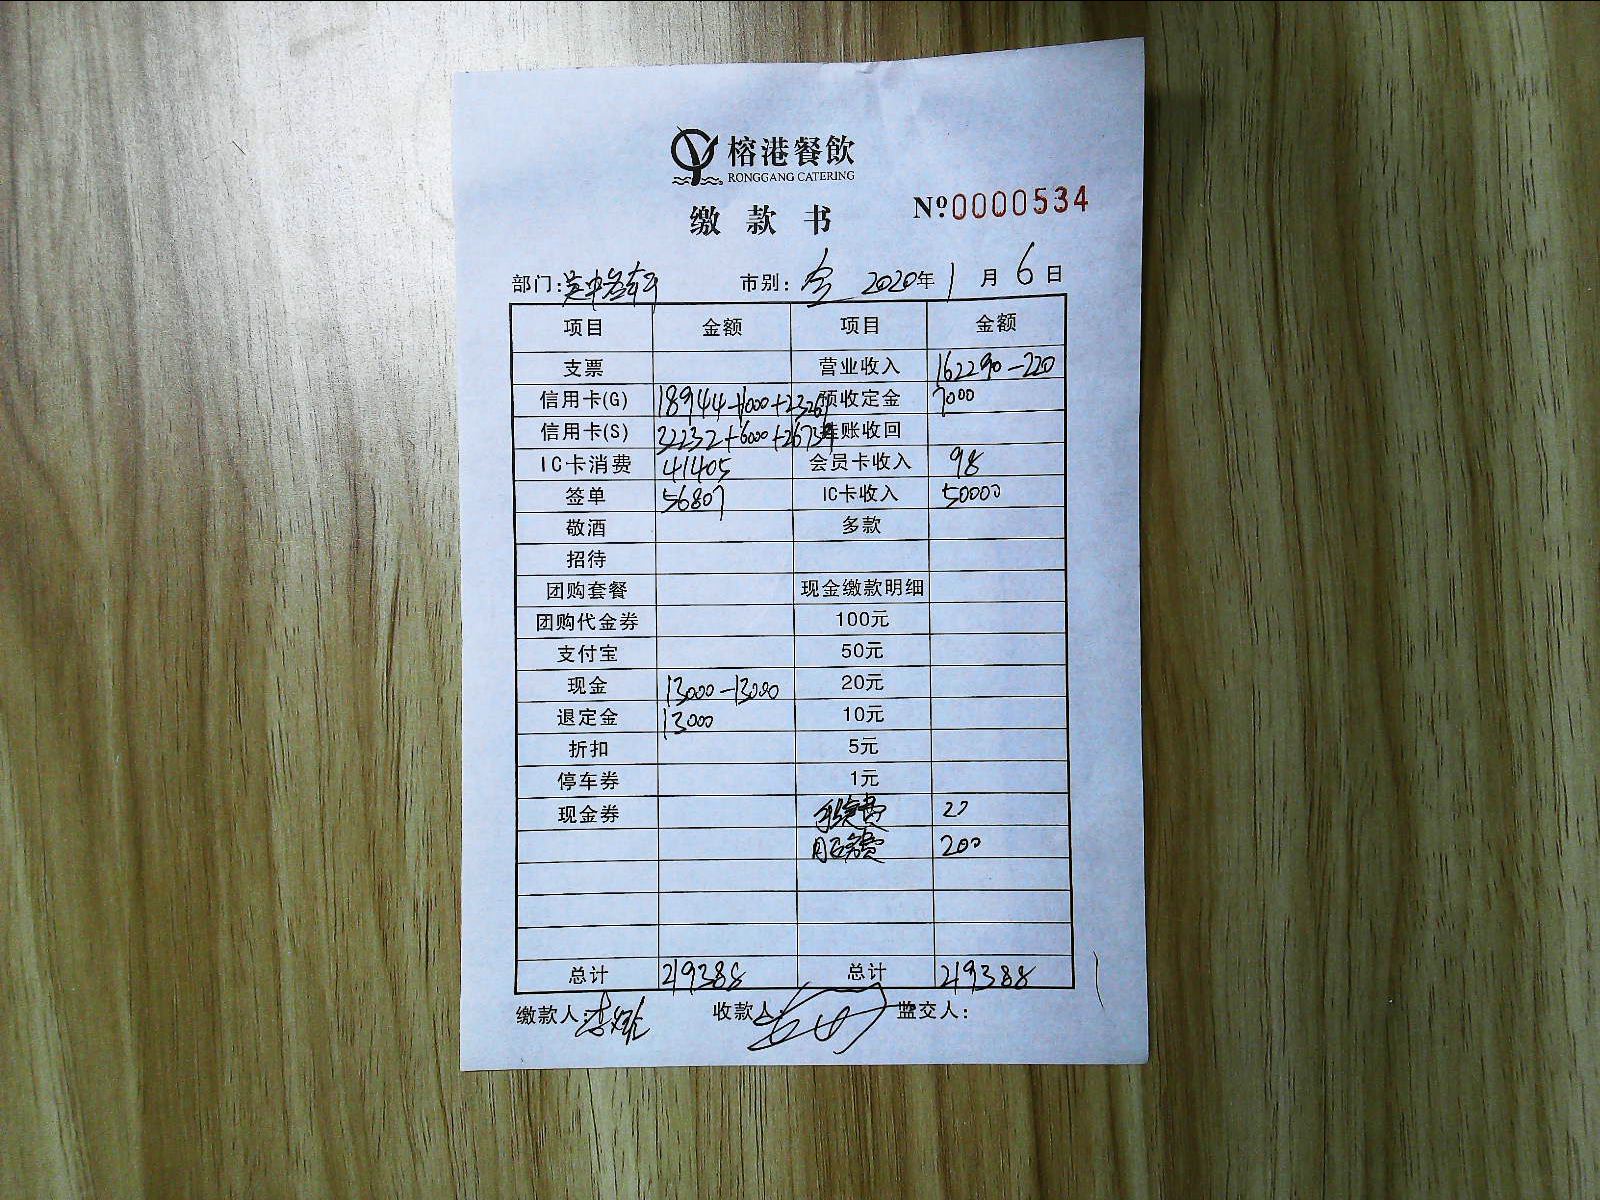 榕港餐飲
RONGGANG CATERING
缴款书 Nº0000534
部门: 市别: 全 2020年1月6日
项目 金额 项目 金额
支票 营业收入 162290-220
信用卡(G) 18944+1000+23261 预收定金 7000
信用卡(S) 32232+6000+26739 挂账收回
IC卡消费 41405 会员卡收入 98
签单 56807 IC卡收入 50000
敬酒 多款
招待
团购套餐 现金缴款明细
团购代金券 100元
支付宝 50元
现金 13000-13000 20元
退定金 13000 10元
折扣 5元
停车券 1元
现金券 手续费 20
服务费 200
总计 219388 总计 219388
缴款人: 收款人: 监交人: